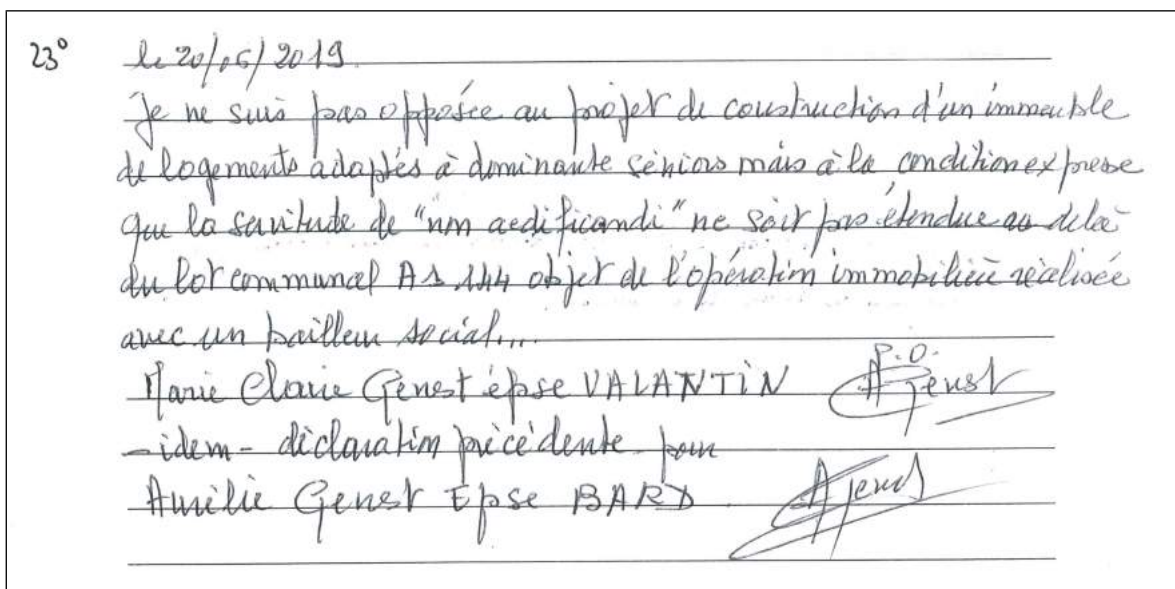 23° le 20/05/2019.
Je ne suis pas opposée au projet de construction d'un immeuble
de logements adaptés à dominante séniors mais à la condition expresse
que la servitude de "non aedificandi" ne soit pas étendue au delà
du lot communal AS 144 objet de l'opération immobilière réalisée
avec un bailleur social....
P.O.
Marie Claire Genest épse VALANTIN AGenest
- idem - déclaration précédente pour
Aurélie Genest Epse BARD AGenest